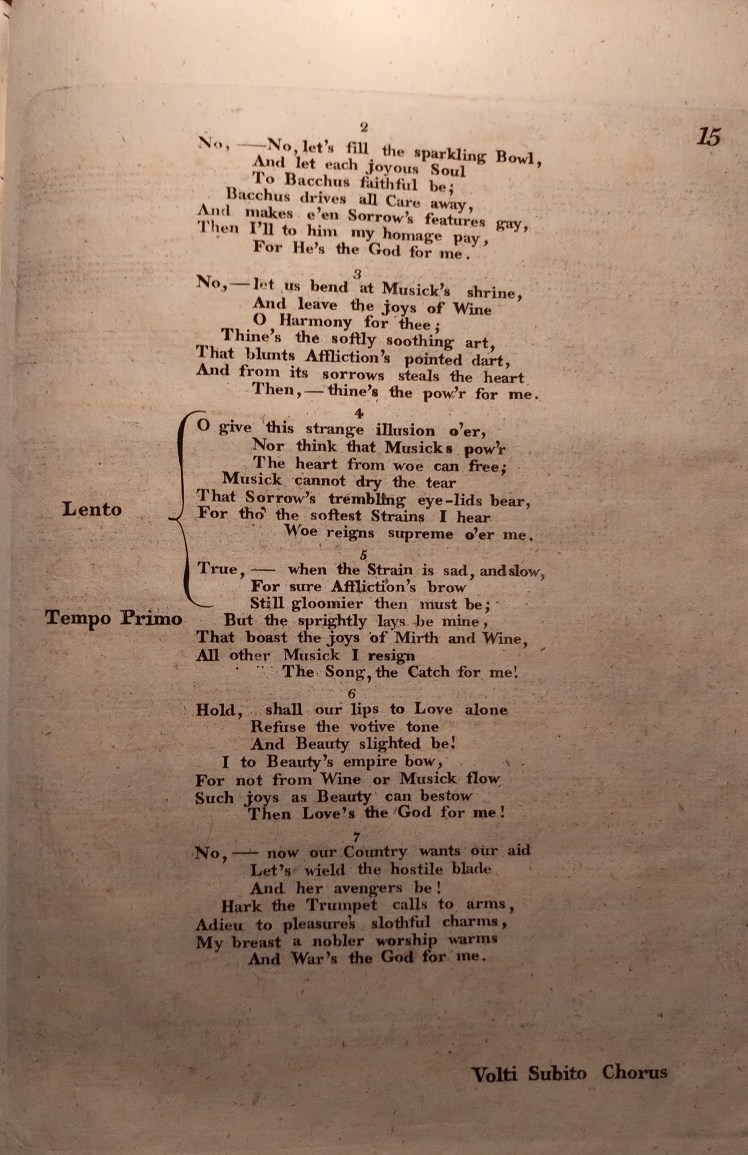 15
2
No, — No, let's fill the sparkling Bowl,
And let each joyous Soul
To Bacchus faithful be;
Bacchus drives all Care away,
And makes e'en Sorrow's features gay,
Then I'll to him my homage pay,
For He's the God for me.
3
No, — let us bend at Musick's shrine,
And leave the joys of Wine
O Harmony for thee;
Thine's the softly soothing art,
That blunts Affliction's pointed dart,
And from its sorrows steals the heart
Then, — thine's the pow'r for me.
4
O give this strange illusion o'er,
Nor think that Musicks pow'r
The heart from woe can free;
Musick cannot dry the tear
That Sorrow's trembling eye-lids bear,
Lento
For tho' the softest Strains I hear
Woe reigns supreme o'er me.
5
True, — when the Strain is sad, and slow,
For sure Affliction's brow
Still gloomier then must be;
Tempo Primo
But the sprightly lays be mine,
That boast the joys of Mirth and Wine,
All other Musick I resign
The Song, the Catch for me!
6
Hold, shall our lips to Love alone
Refuse the votive tone
And Beauty slighted be!
I to Beauty's empire bow,
For not from Wine or Musick flow
Such joys as Beauty can bestow
Then Love's the God for me!
7
No, — now our Country wants our aid
Let's wield the hostile blade
And her avengers be!
Hark the Trumpet calls to arms,
Adieu to pleasure's slothful charms,
My breast a nobler worship warms
And War's the God for me.
Volti Subito Chorus